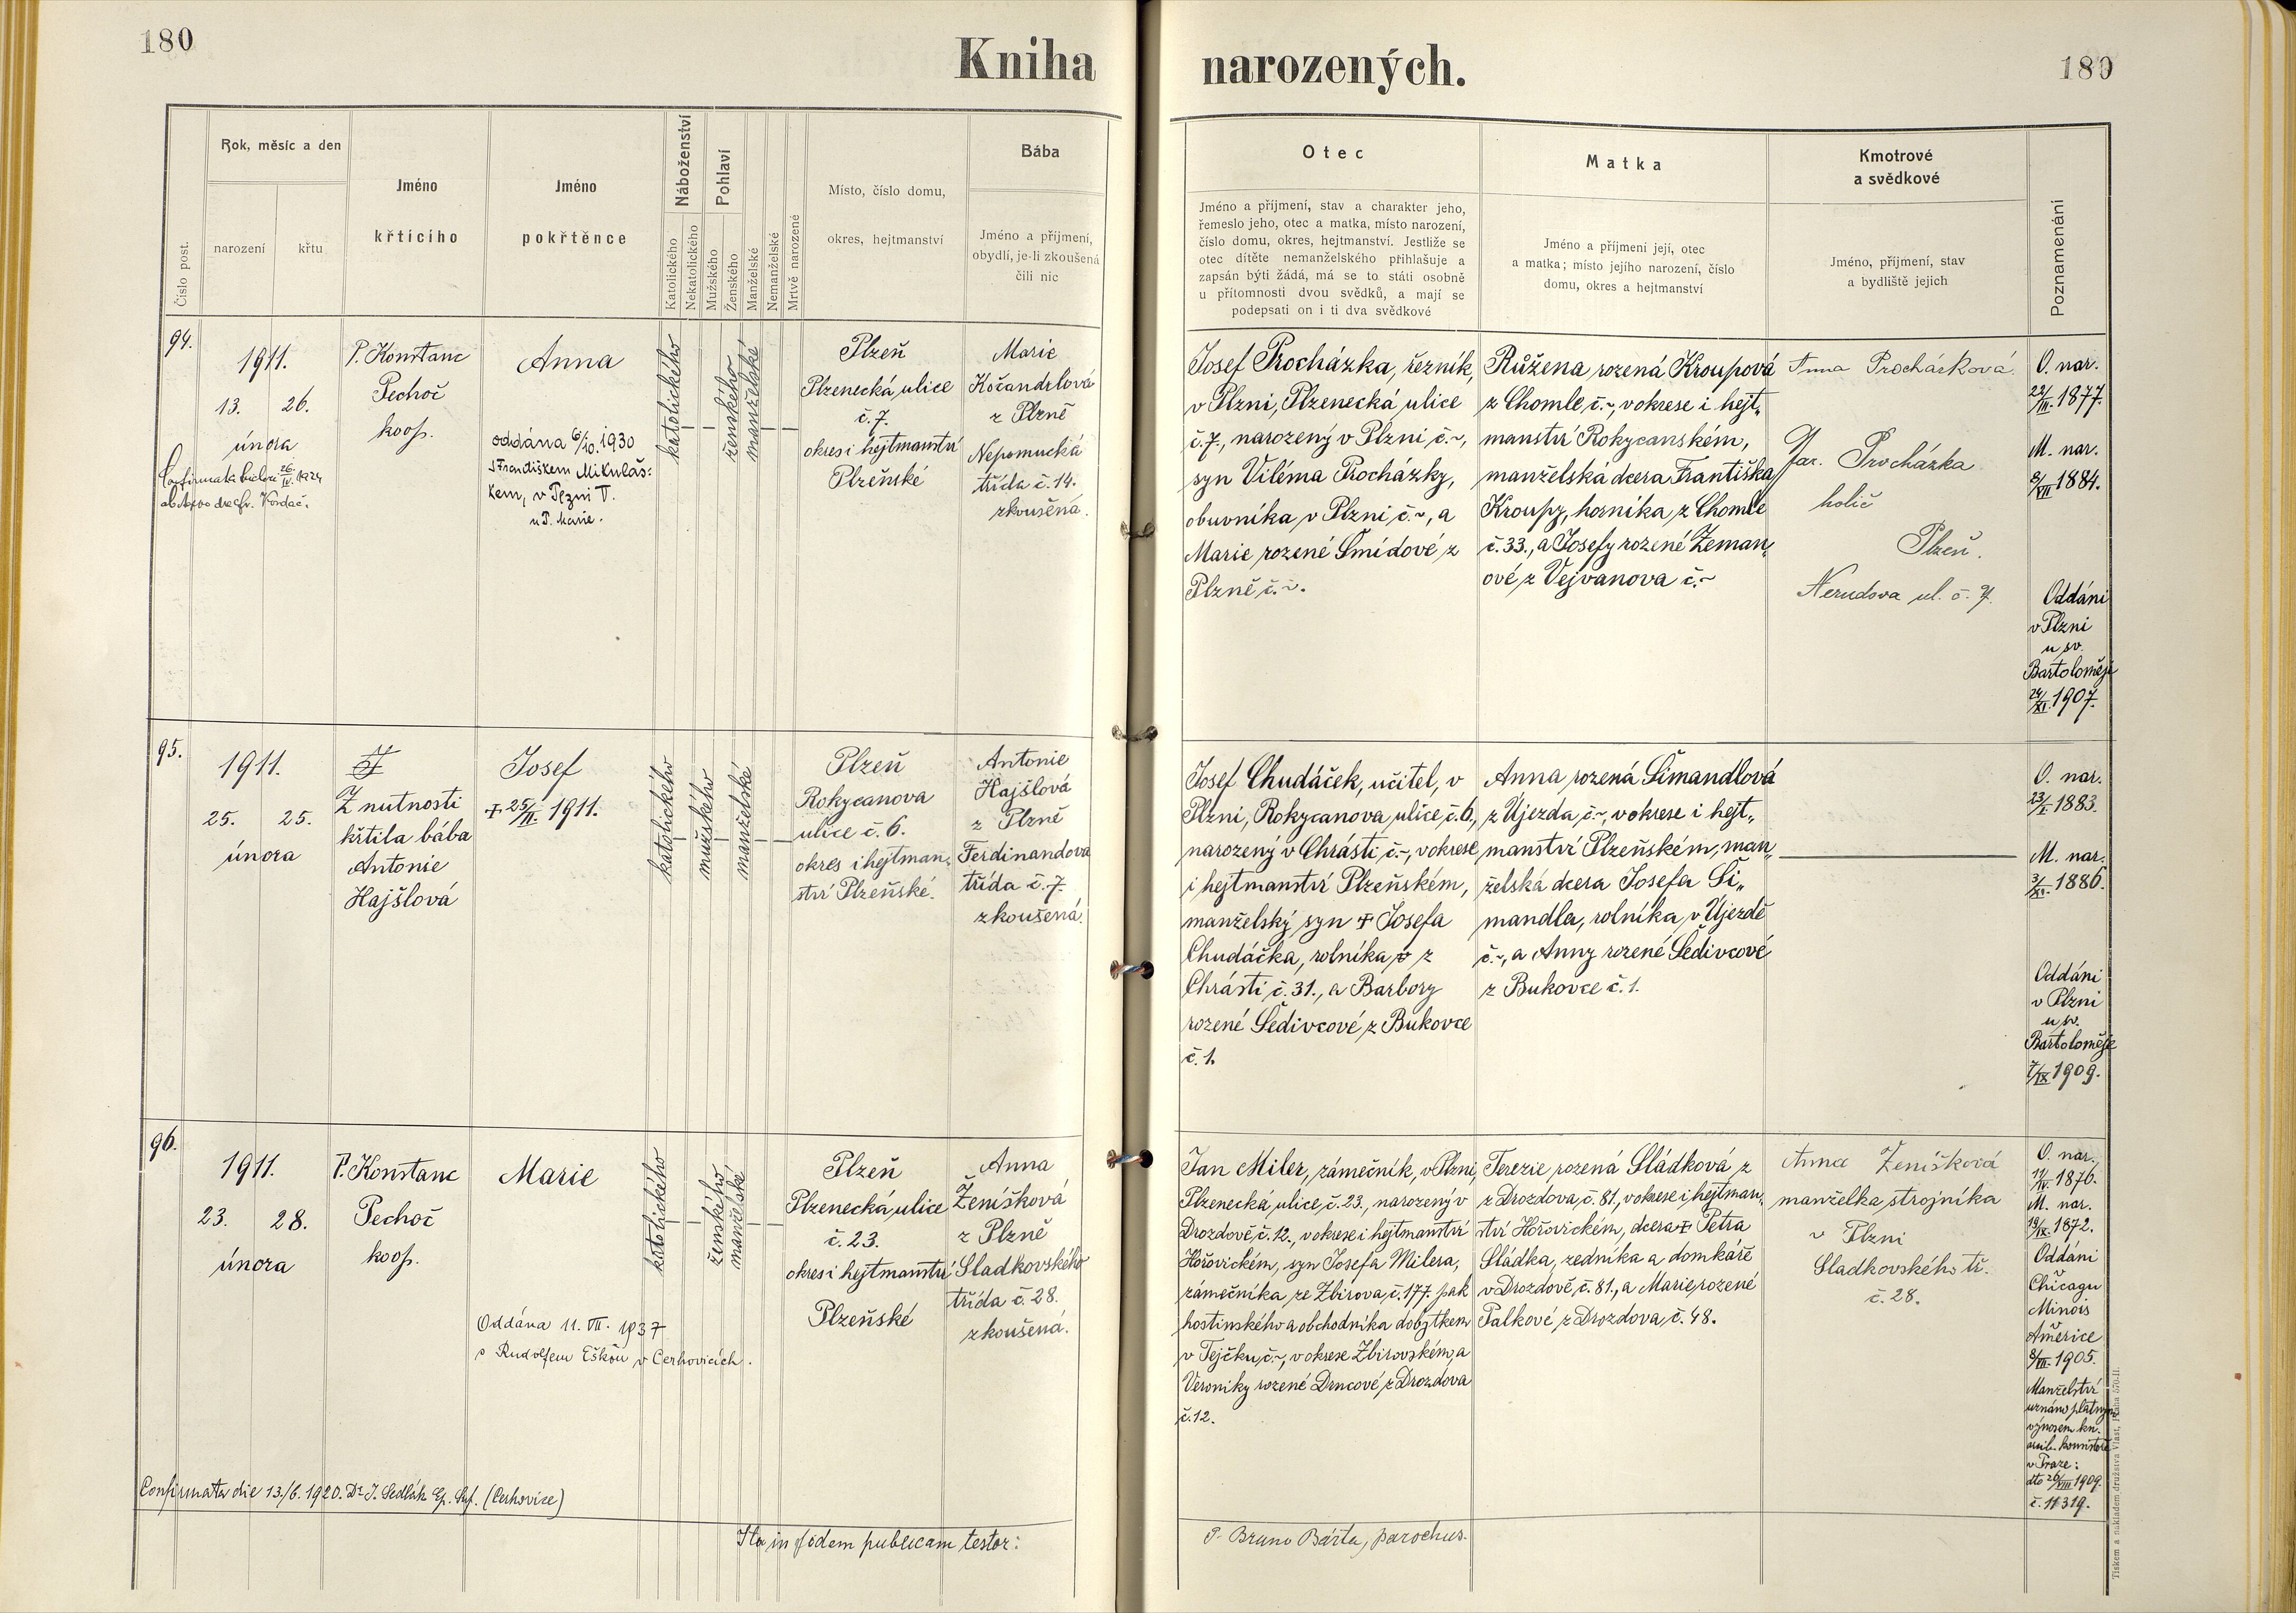 180
Kniha
Rok, měsíc a den
Bába
Číslo post.
narození
křtu
Jméno
křtícího
Jméno
pokřtěnce
Náboženství
Katolického
Nekatolického
Pohlaví
Mužského
Ženského
Manželské
Nemanželské
Mrtvě narozené
Místo, číslo domu,
okres, hejtmanství
Jméno a příjmení,
obydlí, je-li zkoušená
čili nic
94.
1911.
13. 26.
února
P. Konstanc
Pechoč
koop.
Anna
oddána 6/10. 1930
s Františkem Mikuláš:
kem, v Plzni
u P. Marie.
katolického
ženského
manželské
Plzeň
Plzenecká ulice
č. 7.
okres i hejtmanství
Plzeňské
Marie
Kočandrlová
z Plzně
Nepomucká
třída č. 14.
zkoušená.
95.
1911.
25. 25.
února
Z nutnosti
křtila bába
Antonie
Hajšlová
Josef
+ 25/II. 1911.
katolického
mužského
manželské
Plzeň
Rokycanova
ulice č. 6.
okres i hejtman„
ství Plzeňské.
Antonie
Hajšlová
z Plzně
Ferdinandova
třída č. 7.
zkoušená.
96.
1911.
23. 28.
února
P. Konstanc
Pechoč
koop.
Marie
Oddána 11. VII. 1937
s Rudolfem v Cerhovicích.
katolického
ženského
manželské
Plzeň
Plzenecká ulice
č. 23.
okres i hejtmanství
Plzeňské
Anna
Ženíšková
z Plzně
Sladkovského
třída č. 28.
zkoušená.
Confirmata die 13./6. 1920. Dr. J. Sedlák Ep. Suf. (Cerhovice)
Ita in fidem publicam testor:
narozených.
180
Otec
Jméno a příjmení, stav a charakter jeho,
řemeslo jeho, otec a matka, místo narození,
číslo domu, okres, hejtmanství. Jestliže se
otec dítěte nemanželského přihlašuje a
zapsán býti žádá, má se to státi osobně
u přítomnosti dvou svědků, a mají se
podepsati on i ti dva svědkové
Matka
Jméno a příjmení její, otec
a matka; místo jejího narození, číslo
domu, okres a hejtmanství
Kmotrové
a svědkové
Jméno, příjmení, stav
a bydliště jejich
Poznamenání
Josef Procházka, řezník,
v Plzni, Plzenecká ulice
č. 7., narozený v Plzni č. ~,
syn Viléma Procházky,
obuvníka v Plzni č. ~, a
Marie rozené Šmídové z
Plzně č. ~.
Růžena rozená Kroupová
z Chomle č. ~, v okrese i hejt„
manství Rokycanském,
manželská dcera Františka
Kroupy, horníka z Chomle
č. 33., a Josefy rozené Zeman„
ové z Vejvanova č. ~
Anna Procházková
Jar. Procházka
holič
Plzeň.
Nerudova ul. č. 7.
O. nar.
22/III. 1877.
M. nar.
8/VII 1884.
Oddáni
v Plzni
u sv.
Bartoloměje
24/XI. 1907.
Josef Chudáček, učitel, v
Plzni, Rokycanova ulice č. 6.,
narozený v Chrásti č. ~, v okrese
i hejtmanství Plzeňském,
manželský syn + Josefa
Chudáčka, rolníka z
Chrásti č. 31., a Barbory
rozené Šedivcové z Bukovce
č. 1.
Anna rozená Šimandlová
z Újezda č. ~, v okrese i hejt„
manství Plzeňském, man„
želská dcera Josefa Ši„
mandla, rolníka v Újezdě
č. ~, a Anny rozené Šedivcové
z Bukovce č. 1.
O. nar.
23/I. 1883.
M. nar.
3/XI. 1886.
Oddáni
v Plzni
u sv.
Bartoloměje
7/IX 1909.
Jan Miler, zámečník, v Plzni,
Plzenecká ulice č. 23., narozený v
Drozdově č. 12., v okrese i hejtmanství
Hořovickém, syn Josefa Milera,
zámečníka ze Zbirova č. 177. pak
hostinského a obchodníka dobytkem
v Tejčku č. ~, v okrese Zbirovském, a
Veroniky rozené Drncové z Drozdova
č. 12.
Terezie rozená Sládková z
z Drozdova č. 81., v okrese i hejtman„
ství Hořovickém, dcera + Petra
Sládka, zedníka a domkáře
v Drozdově č. 81., a Marie rozené
Palkové z Drozdova č. 48.
Anna Ženíšková
manželka strojníka
v Plzni
Sladkovského tř.
č. 28.
O. nar.
11/IV. 1876.
M. nar.
19/IX. 1872.
Oddáni
v
Chicagu
Illinois
v
Americe
8/VII. 1905.
Manželství
uznáno platným
výnosem kn.
arcib. konsistoře
v Praze:
dto 26/VIII 1909.
č. 11319.
P. Bruno Bárta, parochus.
Tiskem a nakladem družstva Vlast, Praha 570-II.